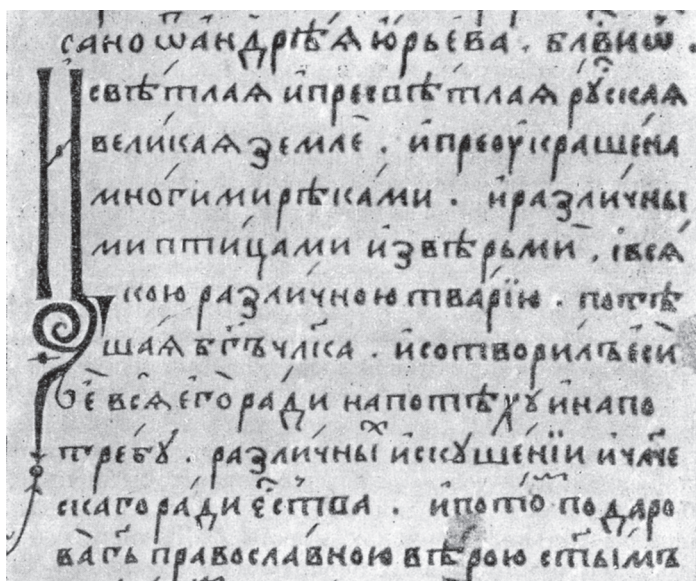 сано ѿ андрѣѧ юрьєва . бл҃виѿ .
свѣтлаѧ и пресвѣтлаѧ рꙋсскаѧ
великаѧ землѧ . и преоукрашена
многими рѣками . и различны
ми птицами и звѣрьми . і всѧ
кою различною тварїю . потѣ
шаѧ бг҃ъ чл҃ка . и сотворилъ єси
є всѧ єго ради на потѣхꙋ и на по
требꙋ . различных искꙋшенїи и чл҃че
скаго ради єства . и пото по дарова
ва гь православною вѣрою ст҃ымъ